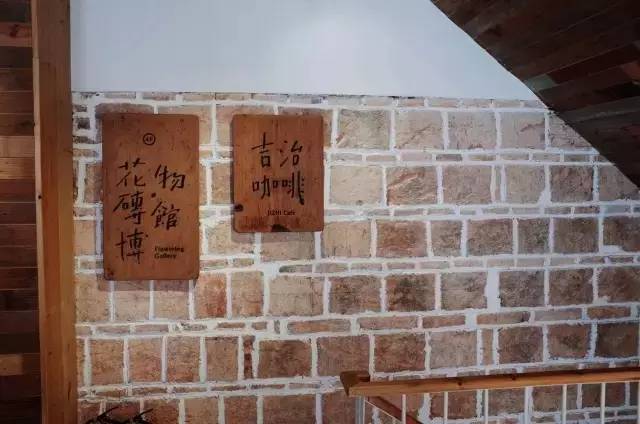 花磚博
物館
Flowering
Gallery
吉治
咖啡
JIZHI Café